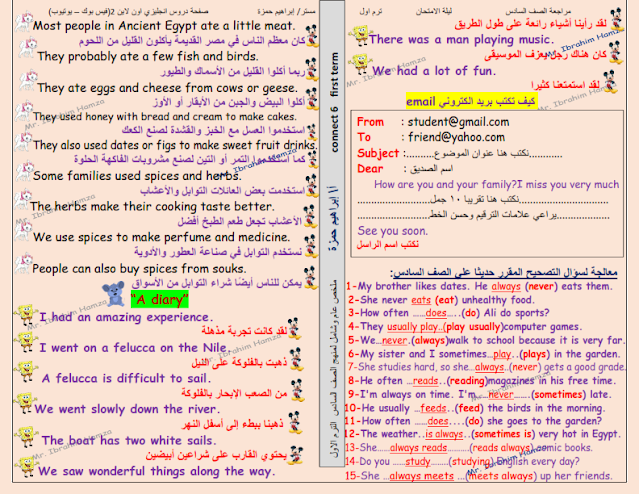 مراجعة الصف السادس ليلة الامتحان ترم اول مستر/ إبراهيم حمزة صفحة دروس انجليزي اون لاين 2(فيس بوك – يوتيوب)
Most people in Ancient Egypt ate a little meat.
كان معظم الناس في مصر القديمة يأكلون القليل من اللحوم
They probably ate a few fish and birds.
ربما أكلوا القليل من الأسماك والطيور
They ate eggs and cheese from cows or geese.
أكلوا البيض والجبن من الأبقار أو الأوز
They used honey with bread and cream to make cakes.
استخدموا العسل مع الخبز والقشدة لصنع الكعك
They also used dates or figs to make sweet fruit drinks.
كما استخدموا التمر أو التين لصنع مشروبات الفاكهة الحلوة
Some families used spices and herbs.
استخدمت بعض العائلات التوابل والأعشاب
The herbs make their cooking taste better.
الأعشاب تجعل طعم الطبخ أفضل
We use spices to make perfume and medicine.
نستخدم التوابل في صناعة العطور والأدوية
People can also buy spices from souks.
يمكن للناس أيضًا شراء التوابل من الأسواق
"A diary"
I had an amazing experience.
لقد كانت تجربة مذهلة
I went on a felucca on the Nile.
ذهبت بالفلوكة على النيل
A felucca is difficult to sail.
من الصعب الإبحار بالفلوكة
We went slowly down the river.
ذهبنا ببطء إلى أسفل النهر
The boat has two white sails.
يحتوي القارب على شراعين أبيضين
We saw wonderful things along the way.
connect 6 first term
أ/ إبراهيم حمزة
ملخص عام وشامل لمنهج الصف السادس الترم الاول
لقد رأينا أشياء رائعة على طول الطريق
There was a man playing music.
كان هناك رجل يعزف الموسيقى
We had a lot of fun.
لقد استمتعنا كثيرا
كيف تكتب بريد الكتروني email
From : student@gmail.com
To : friend@yahoo.com
Subject :..........نكتب هنا عنوان الموضوع............
Dear : اسم الصديق
How are you and your family?I miss you very much
..................نكتب هنا تقريبا 10 جمل..................
..................يراعي علامات الترقيم وحسن الخط..................
See you soon.
نكتب اسم الراسل
معالجة لسؤال التصحيح المقرر حديثا على الصف السادس:
1-My brother likes dates. He always (never) eats them.
2-She never eats (eat) unhealthy food.
3-How often ......does....(do) Ali do sports?
4-They usually play..(play usually)computer games.
5-We...never.(always)walk to school because it is very far.
6-My sister and I sometimes...play..(plays) in the garden.
7-She studies hard, so she...always..(never) gets a good grade.
8-He often ...reads..(reading)magazines in his free time.
9-I'm always on time. I'm....never.......(sometimes) late.
10-He usually ...feeds..(feed) the birds in the morning.
11-How often ......does....(do) she goes to the garden?
12-The weather..is always..(sometimes is) very hot in Egypt.
13-She.....always reads..........(reads always) comic books.
14-Do you ......study........(studying) English every day?
15-She ...always meets ...(meets always) up her friends.
Mr. Ibrahim Hamza